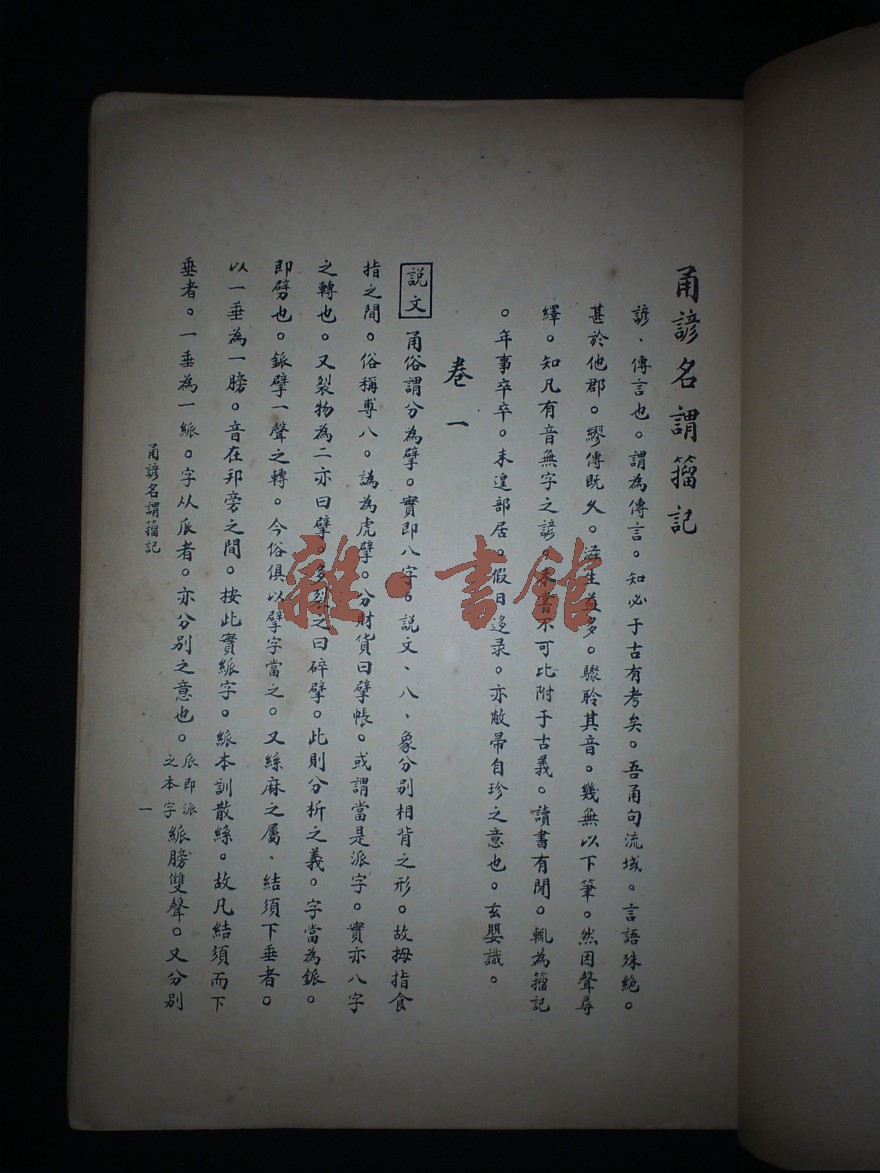 甬諺名謂籀記
諺、傳言也。謂為傳言。知必于古有考矣。吾甬句流域。言語殊絕。
甚於他郡。繆傳既久。滋生益多。驟聆其音。幾無以下筆。然因聲尋
繹。知凡有音無字之諺。未嘗不可比附于古義。讀書有閒。輒為籀記
。年事卒卒。未遑部居。假日迻录。亦敝帚自珍之意也。玄嬰識。
卷一
說文 甬俗謂分為擘。實即八字。說文、八、象分別相背之形。故拇指食
指之間。俗稱尃八。譌為虎擘。分財貨曰擘帳。或謂當是派字。實亦八字
之轉也。又裂物為二亦曰擘。多裂之曰碎擘。此則分析之義。字當為䤨。
即劈也。䤨擘一聲之轉。今俗俱以擘字當之。又絲麻之屬、結須下垂者。
以一垂為一膀。音在邦旁之間。按此實紙字。本訓散絲。故凡結須而下
垂者。一垂為一。字从𠂢者。亦分別之意也。𠂢即派之本字 膀雙聲。又分別
甬諺名謂籀記
一
雜·書館